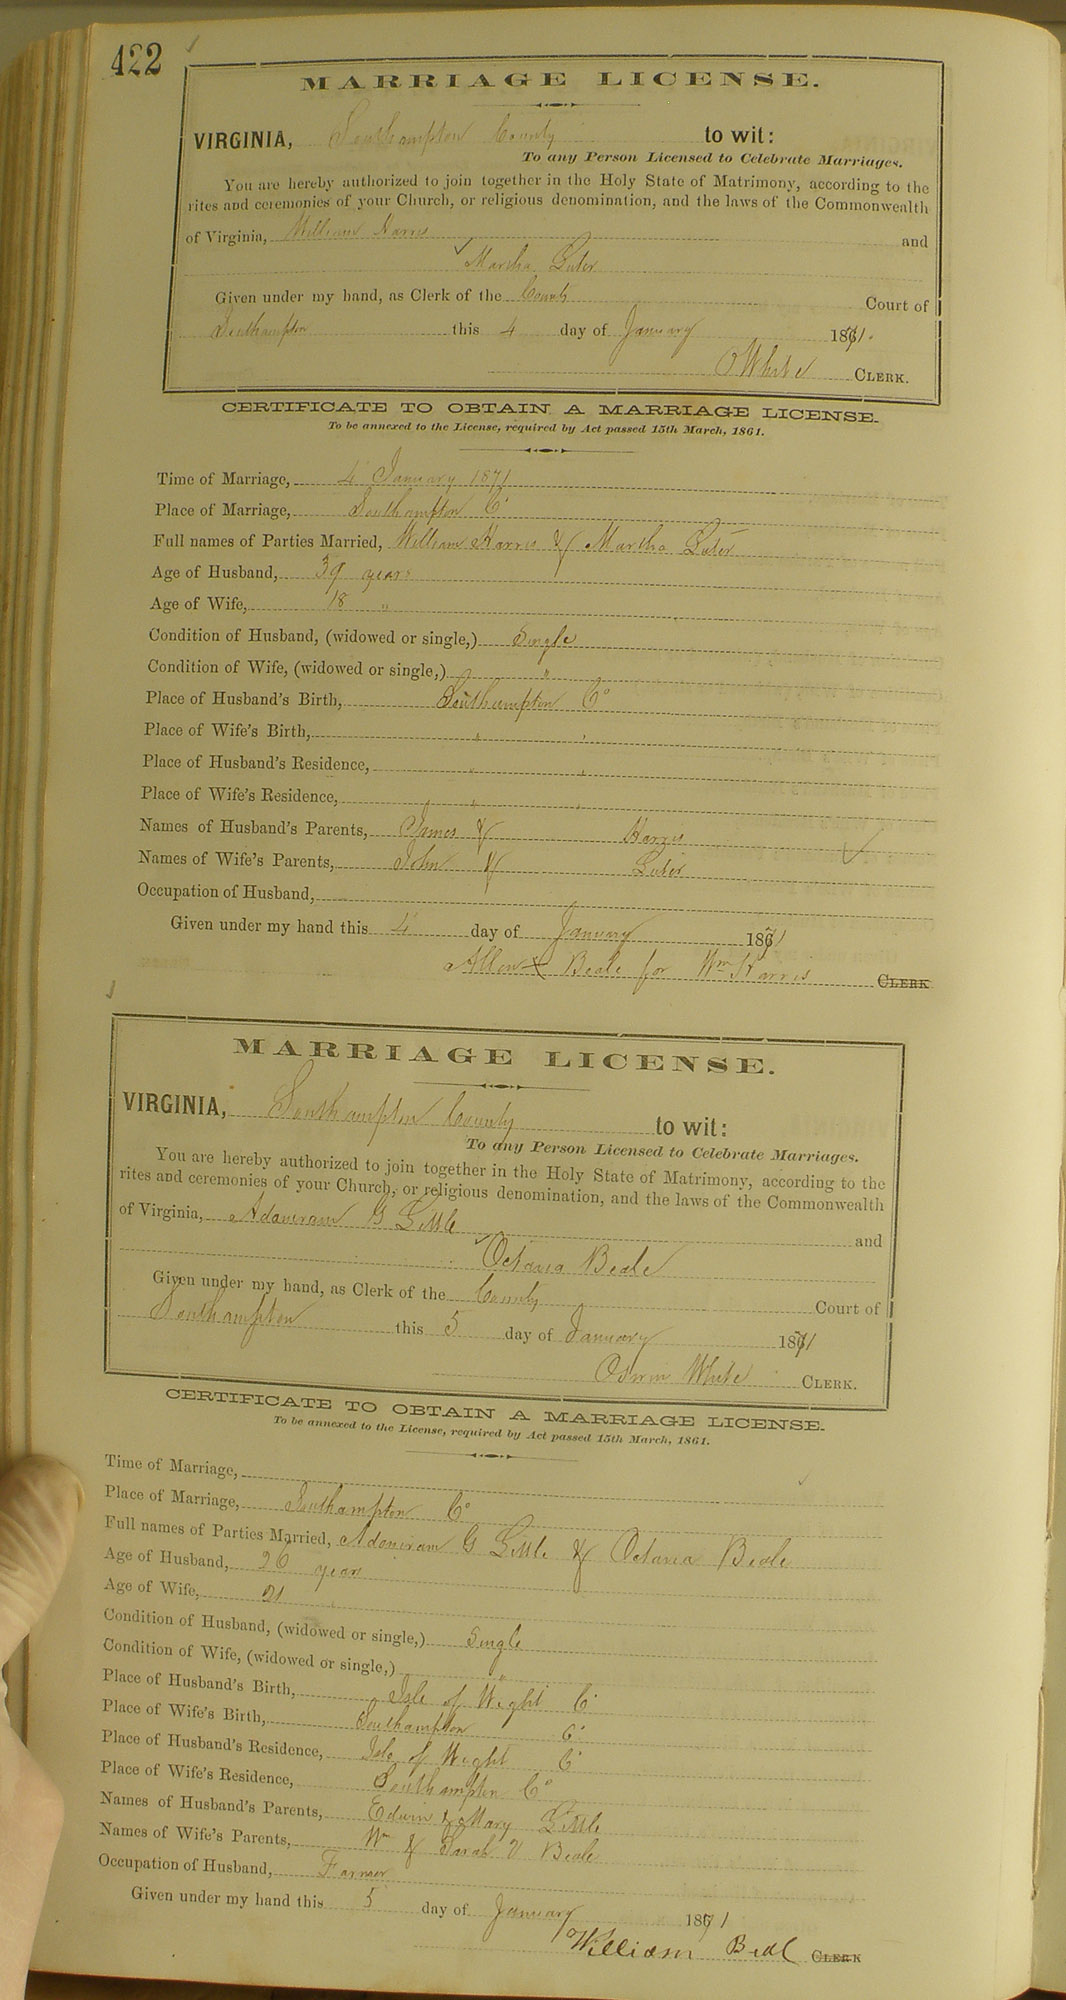 422
MARRIAGE LICENSE.
VIRGINIA, Southampton County to wit:
To any Person Licensed to Celebrate Marriages.
You are hereby authorized to join together in the Holy State of Matrimony, according to the
rites and ceremonies of your Church, or religious denomination, and the laws of the Commonwealth
of Virginia, William Harris and
Martha Luter
Given under my hand, as Clerk of the County Court of
Southampton this 4 day of January 1871.
O White CLERK.
CERTIFICATE TO OBTAIN A MARRIAGE LICENSE.
To be annexed to the License, required by Act passed 15th March, 1861.
Time of Marriage, 4 January 1871
Place of Marriage, Southampton Co
Full names of Parties Married, William Harris & Martha Luter
Age of Husband, 39 years
Age of Wife, 18 "
Condition of Husband, (widowed or single,) Single
Condition of Wife, (widowed or single,) "
Place of Husband's Birth, Southampton Co
Place of Wife's Birth, " "
Place of Husband's Residence, " "
Place of Wife's Residence, " "
Names of Husband's Parents, James & Harris
Names of Wife's Parents, John & Luter
Occupation of Husband,
Given under my hand this 4 day of January 1871
Allen X Beale for Wm Harris CLERK
MARRIAGE LICENSE.
VIRGINIA, Southampton County to wit:
To any Person Licensed to Celebrate Marriages.
You are hereby authorized to join together in the Holy State of Matrimony, according to the
rites and ceremonies of your Church, or religious denomination, and the laws of the Commonwealth
of Virginia, Adoniram G Little and
Octavia Beale
Given under my hand, as Clerk of the County Court of
Southampton this 5 day of January 1871
Oswin White CLERK.
CERTIFICATE TO OBTAIN A MARRIAGE LICENSE.
To be annexed to the License, required by Act passed 15th March, 1861.
Time of Marriage,
Place of Marriage, Southampton Co
Full names of Parties Married, Adoniram G Little & Octavia Beale
Age of Husband, 26 years
Age of Wife, 21 "
Condition of Husband, (widowed or single,) Single
Condition of Wife, (widowed or single,) "
Place of Husband's Birth, Isle of Wight Co
Place of Wife's Birth, Southampton Co
Place of Husband's Residence, Isle of Wight Co
Place of Wife's Residence, Southampton Co
Names of Husband's Parents, Edwin & Mary Little
Names of Wife's Parents, Wm & Sarah Beale
Occupation of Husband, Farmer
Given under my hand this 5 day of January 1871
William Beal CLERK